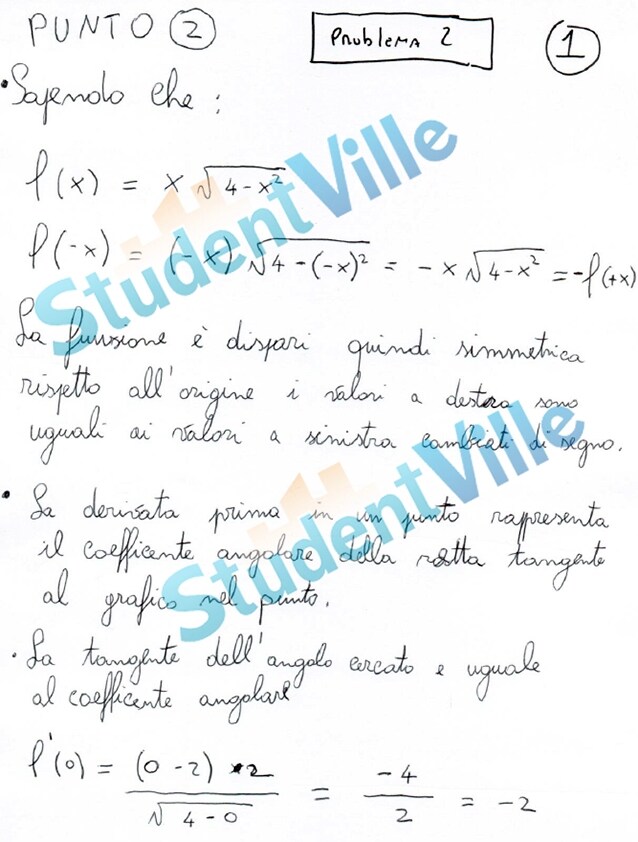 PUNTO 2
Problema 2
1
• Sapendo che :
f(x) = x √(4-x²)
f(-x) = (-x) √(4-(-x)²) = -x √(4-x²) = -f(+x)
La funzione è dispari quindi simmetrica
rispetto all'origine i valori a destra sono
uguali ai valori a sinistra cambiati di segno.
• La derivata prima in un punto rappresenta
il coefficente angolare della retta tangente
al grafico nel punto.
• La tangente dell'angolo cercato e uguale
al coefficente angolare
f'(0) = (0-2) • 2 / √(4-0) = -4 / 2 = -2
StudentVille
StudentVille